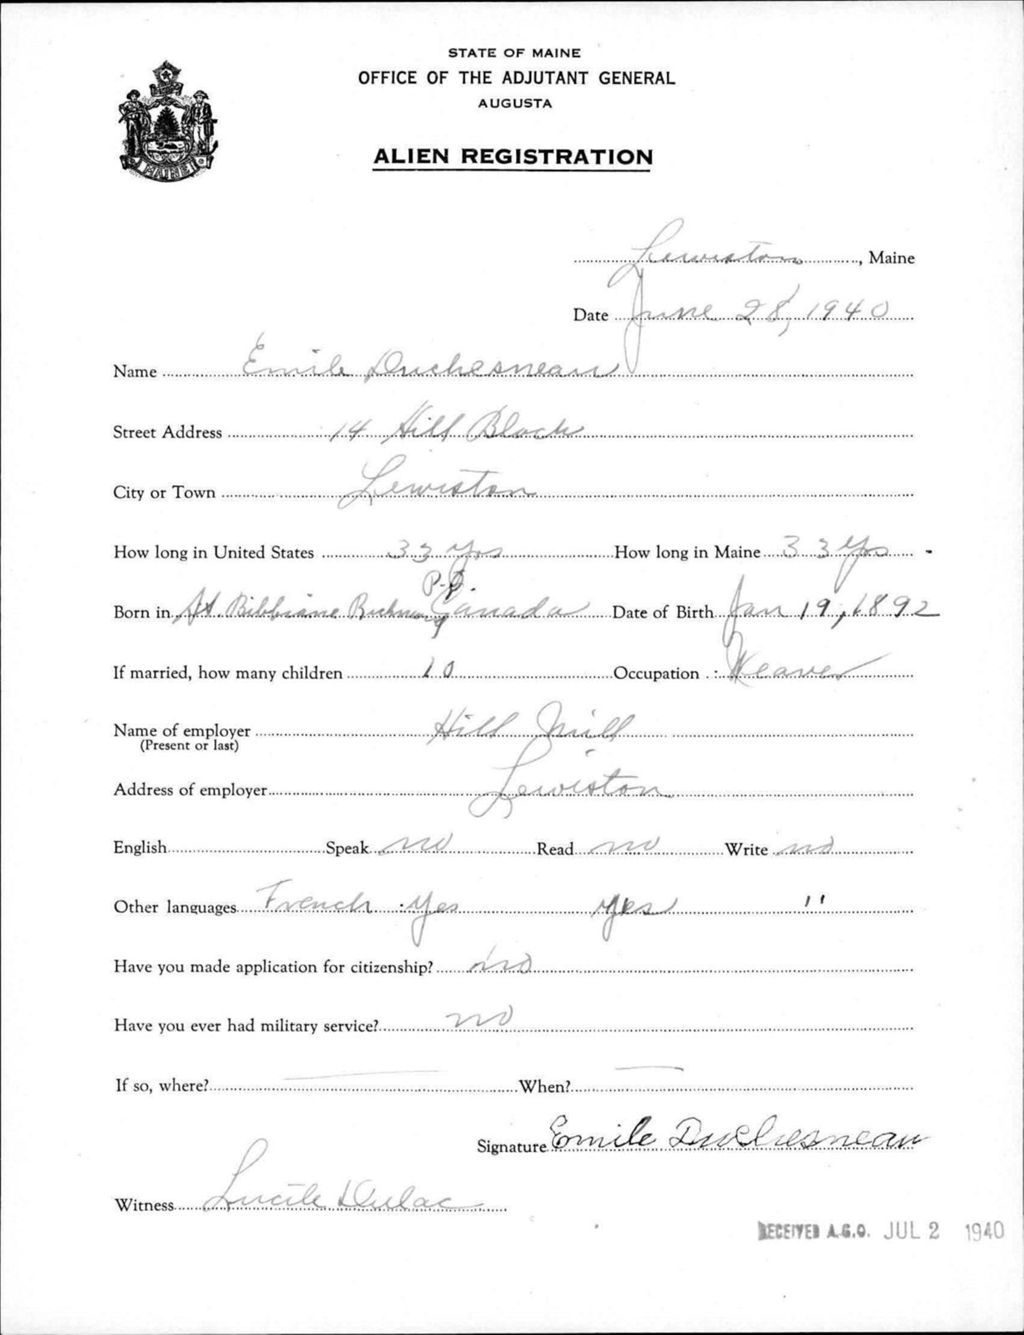 STATE OF MAINE
OFFICE OF THE ADJUTANT GENERAL
AUGUSTA
ALIEN REGISTRATION
MAINE
Lewiston, Maine
Date June 28, 1940
Name Emile Duchesneau
Street Address 14 Hill Block
City or Town Lewiston
How long in United States 33 yrs How long in Maine 33 yrs
P.Q.
Born in St Bibbiane Canada Date of Birth Jan 19, 1892
If married, how many children 10 Occupation Weaver
Name of employer Hill Mill
(Present or last)
Address of employer Lewiston
English Speak no Read no Write no
Other languages French Yes yes "
Have you made application for citizenship? no
Have you ever had military service? no
If so, where? — When? —
Signature Emile Duchesneau
Witness Lucile Dulac
RECEIVED A.G.O. JUL 2 1940